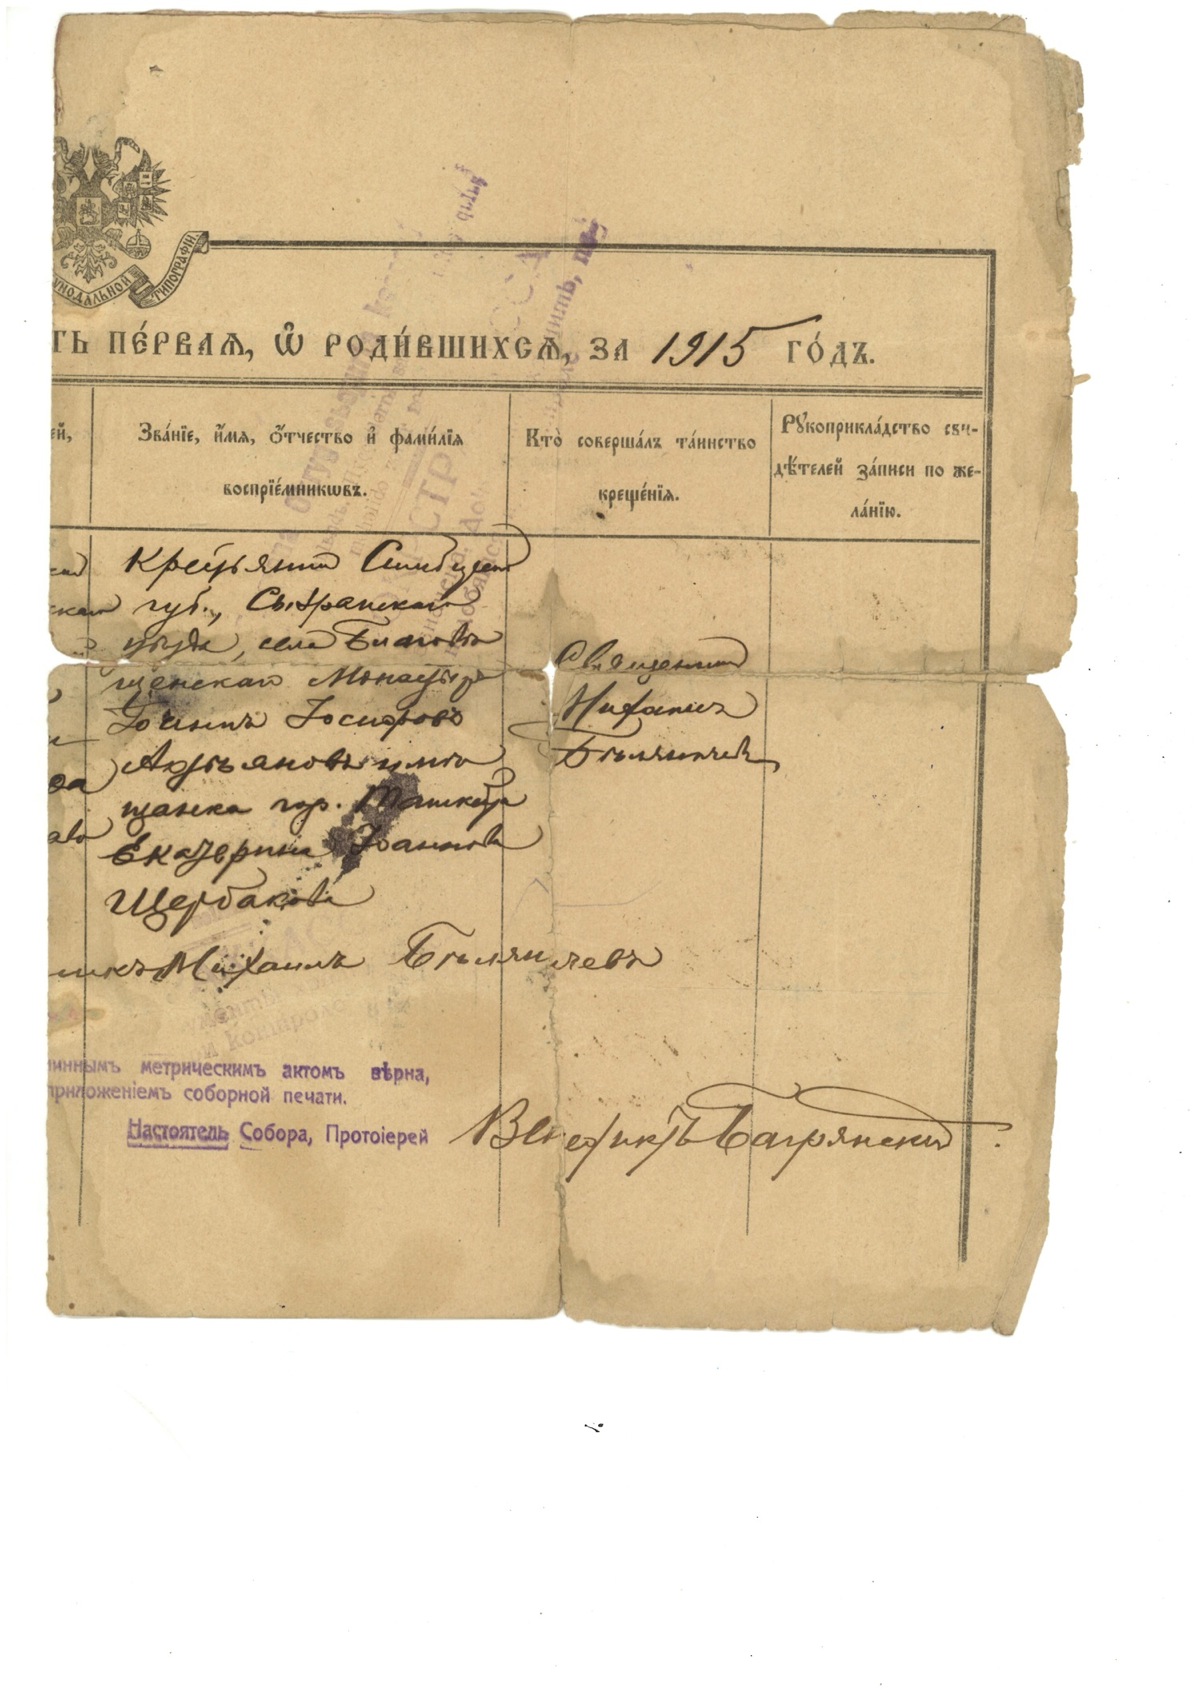 СѴНОДАЛЬНОЙ ТИПОГРАФІИ
ТЬ ПЕ́РВАѦ, Ѿ РОДИ́ВШИХСѦ, ЗА 1915 ГО́ДЪ.
ей,
Зва́нїе, и҆́мѧ, ѻ҆́тчество и҆ фами́лїѧ
воспрїе́мникѡвъ.
Кто̀ соверша́лъ та́инство
креще́нїѧ.
Рꙋкоприкла́дство сви-
дѣ́телей за́писи по же-
ла́нїю.
Крестьянинъ Симбирской
губ., Сызранскаго
уѣзда, села Благовѣ
щенскаго Монастыря
Іоаннъ Іосифовъ
и мѣ
щанка гор. Ташкента
Екатерина Іоаннова
Щербакова
Священникъ
Михаилъ
Бѣляничевъ
никъ Михаилъ Бѣляничевъ
линнымъ метрическимъ актомъ вѣрна,
приложеніемъ соборной печати.
Настоятель Собора, Протоіерей Венедиктъ Багрянскій.